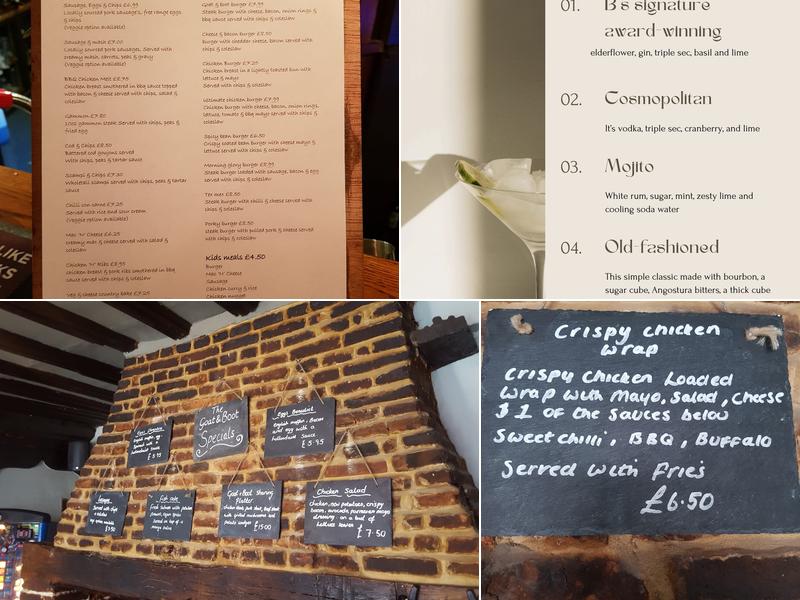 Sausage, Eggs & Chips £6.99
Locally sourced pork sausages, free range eggs
& chips
(veggie option available)
Sausage & mash £7.00
Locally sourced pork sausages, Served with
creamy mash, carrots, peas & gravy
(veggie option available)
BBQ Chicken Melt £8.75
Chicken breast smothered in bbq sauce topped
with bacon & cheese served with chips, salad &
coleslaw
Gammon £7.80
10oz gammon steak Served with chips, peas &
fried egg
Cod & Chips £8.50
Battered cod goujons served
With chips, peas & tartar sauce
Scampi & Chips £7.30
Wholetail scampi served with chips, peas & tartar
sauce
Chilli con carne £7.25
Served with rice and sour cream
(veggie option available)
Mac 'N' Cheese £6.25
creamy mac & cheese served with salad &
coleslaw
Chicken 'N' Ribs £8.95
chicken breast & pork ribs smothered in bbq
sauce served with chips & coleslaw
veg & cheese country bake £7.25
Goat & boot burger £7.99
Steak burger with cheese, bacon, onion rings &
bbq sauce served with chips & coleslaw
Cheese & bacon burger £8.50
burger with cheddar cheese, bacon served with
chips & coleslaw
Chicken Burger £7.25
Chicken breast in a lightly toasted bun with
lettuce & mayo
Served with chips & coleslaw
Ultimate chicken burger £7.99
Chicken burger with cheese, bacon, onion rings,
lettuce, tomato & bbq mayo served with chips &
coleslaw
Spicy bean burger £6.50
Crispy coated bean burger with cheese mayo &
lettuce served with chips & coleslaw
Morning glory burger £8.99
Steak burger loaded with sausage, bacon & egg
served with chips & coleslaw
Tex mex £8.50
Steak burger with chilli & cheese served with
chips & coleslaw
Porky burger £8.50
steak burger with pulled pork & cheese served
with chips & coleslaw
Kids meals £4.50
Burger
Mac 'N' Cheese
Sausage
Chicken curry & rice
Chicken nugget
LIKE
KS
01. B's signature
award-winning
elderflower, gin, triple sec, basil and lime
02. Cosmopolitan
It's vodka, triple sec, cranberry, and lime
03. Mojito
White rum, sugar, mint, zesty lime and
cooling soda water
04. Old-fashioned
This simple classic made with bourbon, a
sugar cube, Angostura bitters, a thick cube
The
Goat & Boot
Specials
Eggs Benedict
English muffin, Bacon
and egg with a
hollandaise Sauce
£5.95
£5.95
Fish cake
Goat & Boot Sharing
Platter
£15.00
Chicken Salad
chicken, new potatoes, crispy
bacon, avocado, parmesan mayo
dressing on a bed of
lettuce leaves
£7.50
Crispy chicken
wrap
Crispy Chicken Loaded
wrap with Mayo, Salad, Cheese
& 1 of the Sauces below
Sweet chilli, BBQ, Buffalo
Served with Fries
£6.50